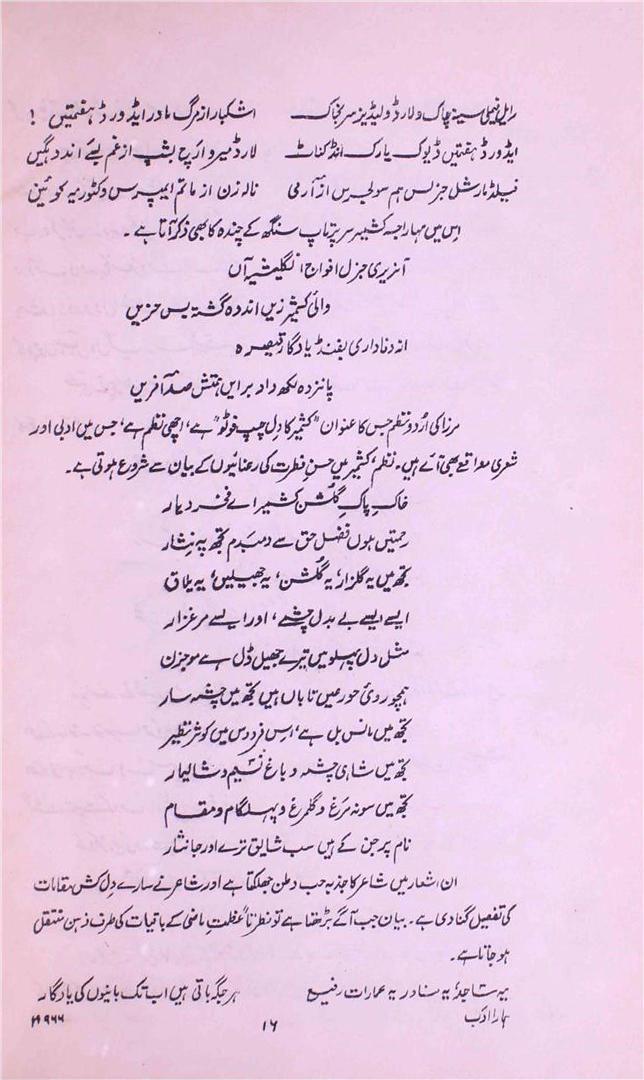 رایل فیملی سینہ چاک و لارڈ و لیڈیز سر بخاک اشکبار از مرگ مادر ایڈورڈ ہفتمیں !
ایڈورڈ ہفتمیں ڈیوک یارک انڈ کناٹ لارڈ میر و آرچ بشپ از غم بسے اندوہگیں
فیلڈ مارشل جنرلس ہم سولجرس از آرمی نالہ زن از ماتم ایمپرس وکٹوریہ کوئین
اس میں مہاراجہ کشمیر سر پرتاپ سنگھ کے چندہ کا بھی ذکر آتا ہے ۔
آنریری جنرل افواج انگلیشیہ آں
والئ کشمیر زیں اندوہ گشتہ بس حزیں
از وفاداری بفنڈ یادگار قیصرہ
پانزدہ لکھ داد برایں ہمتش صد آفریں
مرزا کی اُردو نظم جس کا عنوان "کشمیر کا دل چسپ فوٹو" ہے، اچھی نظم ہے، جس میں ادبی اور
شعری مواقع بھی آئے ہیں۔ نظم، کشمیر میں حسنِ فطرت کی رعنائیوں کے بیان سے شروع ہوتی ہے۔
خاکِ پاکِ گلشن کشمیر اے فخرِ دیار
رحمتیں ہوں فضل حق سے دمبدم تجھ پہ نثار
تجھ میں یہ گلزار، یہ گلشن، یہ جھیلیں، یہ یلاق
ایسے ایسے بے بدل چشمے، اور ایسے مرغزار
مثل دل پہلو میں تیرے جھیل ڈل ہے موجزن
ہمچو روئ حور عیں تاباں ہیں تجھ میں چشمہ سار
تجھ میں مانس بل ہے، اس فردوس میں کوثر نظیر
تجھ میں شاہی چشمہ و باغ نسیم و شالیمار
تجھ میں سونہ مرغ و گلمرغ و پہلگام و مقام
نام پر جن کے ہیں سب شایق ترے اور جانثار
ان اشعار میں شاعر کا جذبہ حب وطن جھلکتا ہے اور شاعر نے سارے دل کش مقامات
کی تفصیل گنا دی ہے۔ بیان جب آگے بڑھتا ہے تو فطرتاً عظمت ماضی کے باقیات کی طرف ذہن منتقل
ہو جاتا ہے۔
یہ مساجد، یہ منادر یہ عمارات رفیع ہر جگہ باقی ہیں اب تک بانیوں کی یادگار
ہمارا ادب ۱۶ ۱۹۶۶ء